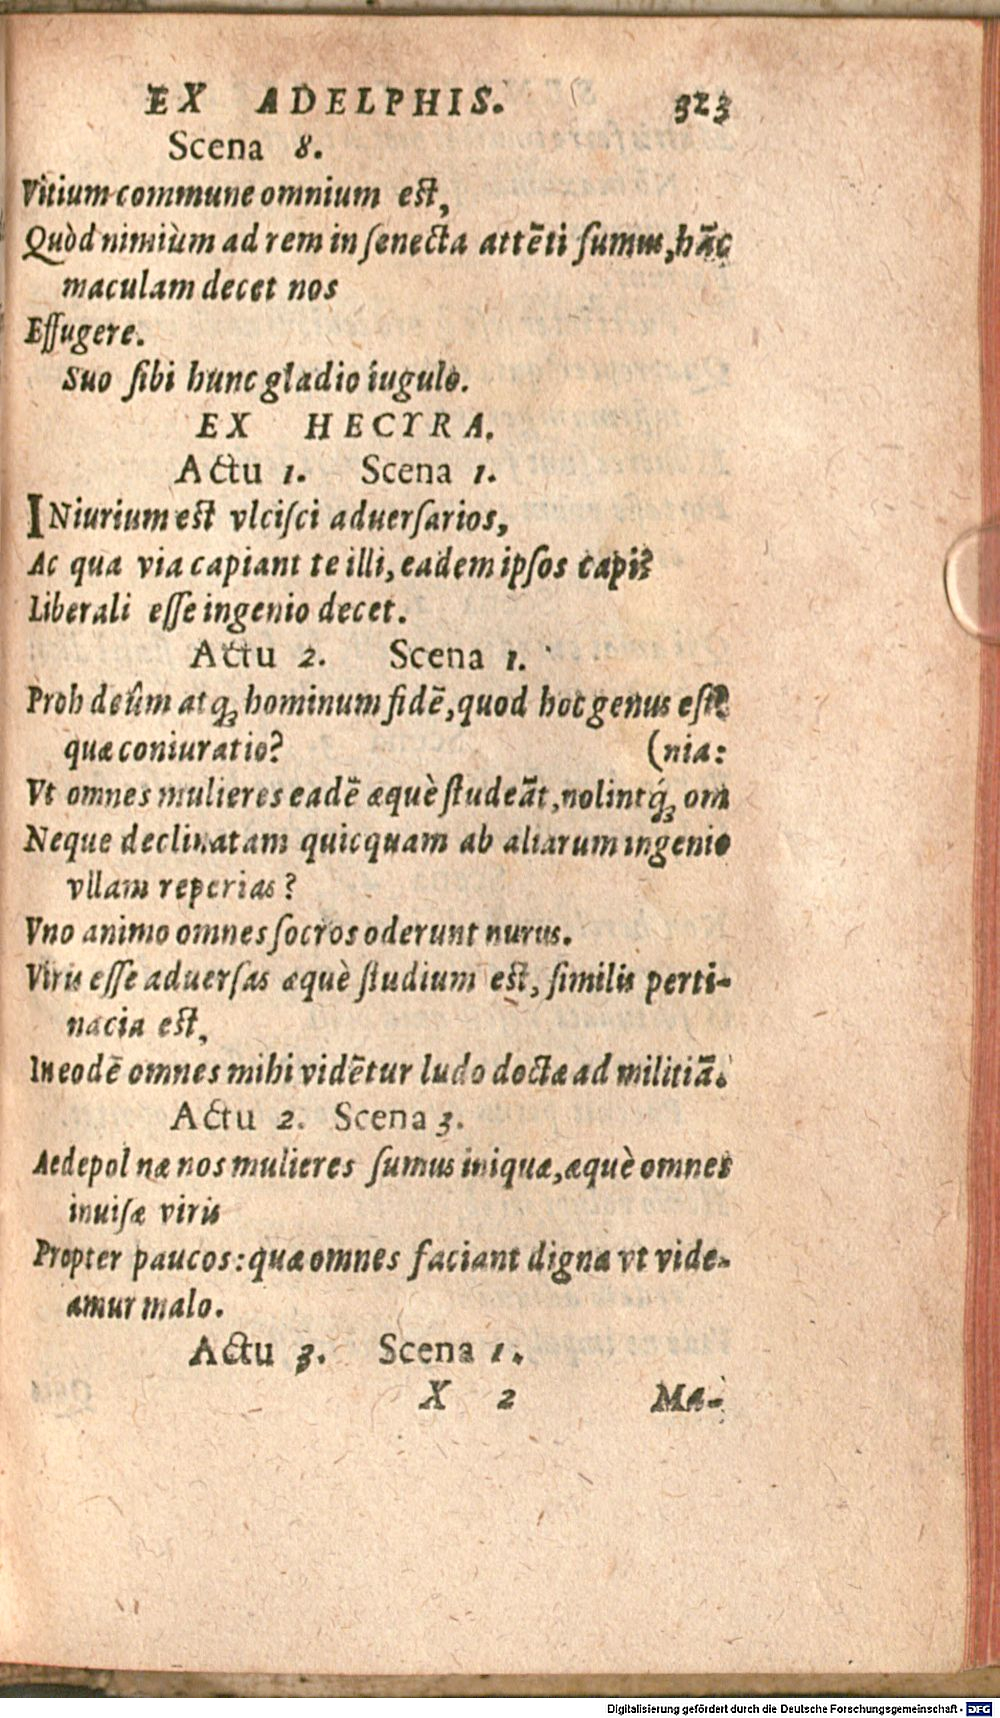 EX ADELPHIS. 323
Scena 8.
Vitium commune omnium est,
Quòd nimiùm ad rem in senecta attēti sumus, hāc
maculam decet nos
Effugere.
Suo sibi hunc gladio iugulo.
EX HECYRA.
Actu 1. Scena 1.
INiurium est vlcisci aduersarios,
Ac qua via capiant te illi, eadem ipsos capi?
Liberali esse ingenio decet.
Actu 2. Scena 1.
Proh deûm atq; hominum fidē, quod hoc genus est
quæ coniuratio? (nia:
Vt omnes mulieres eadē æquè studeāt, nolintq́; om
Neque declinatam quicquam ab aliarum ingenio
vllam reperias?
Vno animo omnes socros oderunt nurus.
Viris esse aduersas æquè studium est, similis perti-
nacia est,
In eodē omnes mihi vidētur ludo doctæ ad militiā.
Actu 2. Scena 3.
Aedepol næ nos mulieres sumus iniquæ, æquè omnes
inuisæ viris
Propter paucos: quæ omnes faciant digna vt vide-
amur malo.
Actu 3. Scena 1.
X 2 Ma-
Digitalisierung gefördert durch die Deutsche Forschungsgemeinschaft - DFG